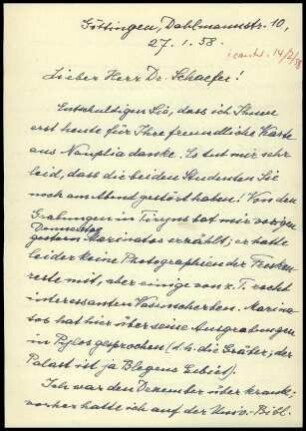 Göttingen, Dahlmannstr. 10,
27.1.58.
beantw. 14/2/58
Lieber Herr Dr. Schaefer!
Entschuldigen Sie, dass ich Ihnen
erst heute für Ihre freundliche Karte
aus Nauplia danke. Es tut mir sehr
leid, dass die beiden Studenten Sie
noch am Abend gestört haben! Von den
Grabungen in Tiryns hat mir vorigen
Donnerstag
gestern Marinatos erzählt; er hatte
leider keine Photographien der Fresken-
reste mit, aber einige von z. T. recht
interessanten Vasenscherben. Marina-
tos hat hier über seine Ausgrabungen
in Pylos gesprochen (d. h. die Gräber; der
Palast ist ja Blegens Gebiet).
Ich war den Dezember über krank;
vorher hatte ich auf der Univ.-Bibl.